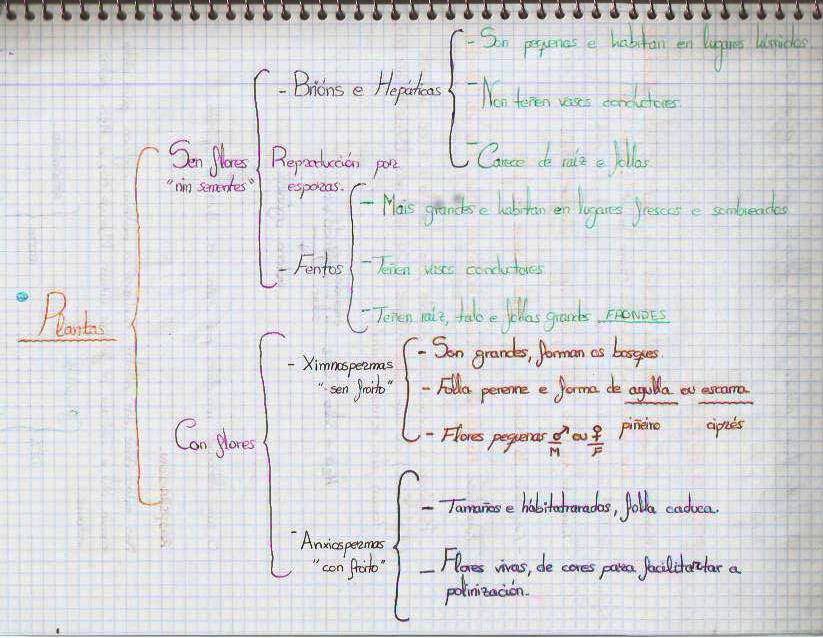 Plantas
Sen flores
"nin sementes"
Reproducción por
esporas.
- Brións e Hepáticas
- Son pequenas e habitan en lugares húmidos.
- Non teñen vasos conductores.
- Carece de raíz e follas.
- Fentos
- Mais grandes e habitan en lugares frescos e sombreados
- Teñen vasos conductores
- Teñen raíz, talo e follas grands FRONDES
Con flores
- Ximnospermas
"sen froito"
- Son grandes, forman os bosques.
- Folla perenne e forma de agulla ou escama
piñeiro ciprés
- Flores pequenas ♂ ou ♀
M F
- Anxiospermas
"con froito"
- Tamaños e hábitats , folla caduca.
- Flores vivas, de cores para a
polinización.